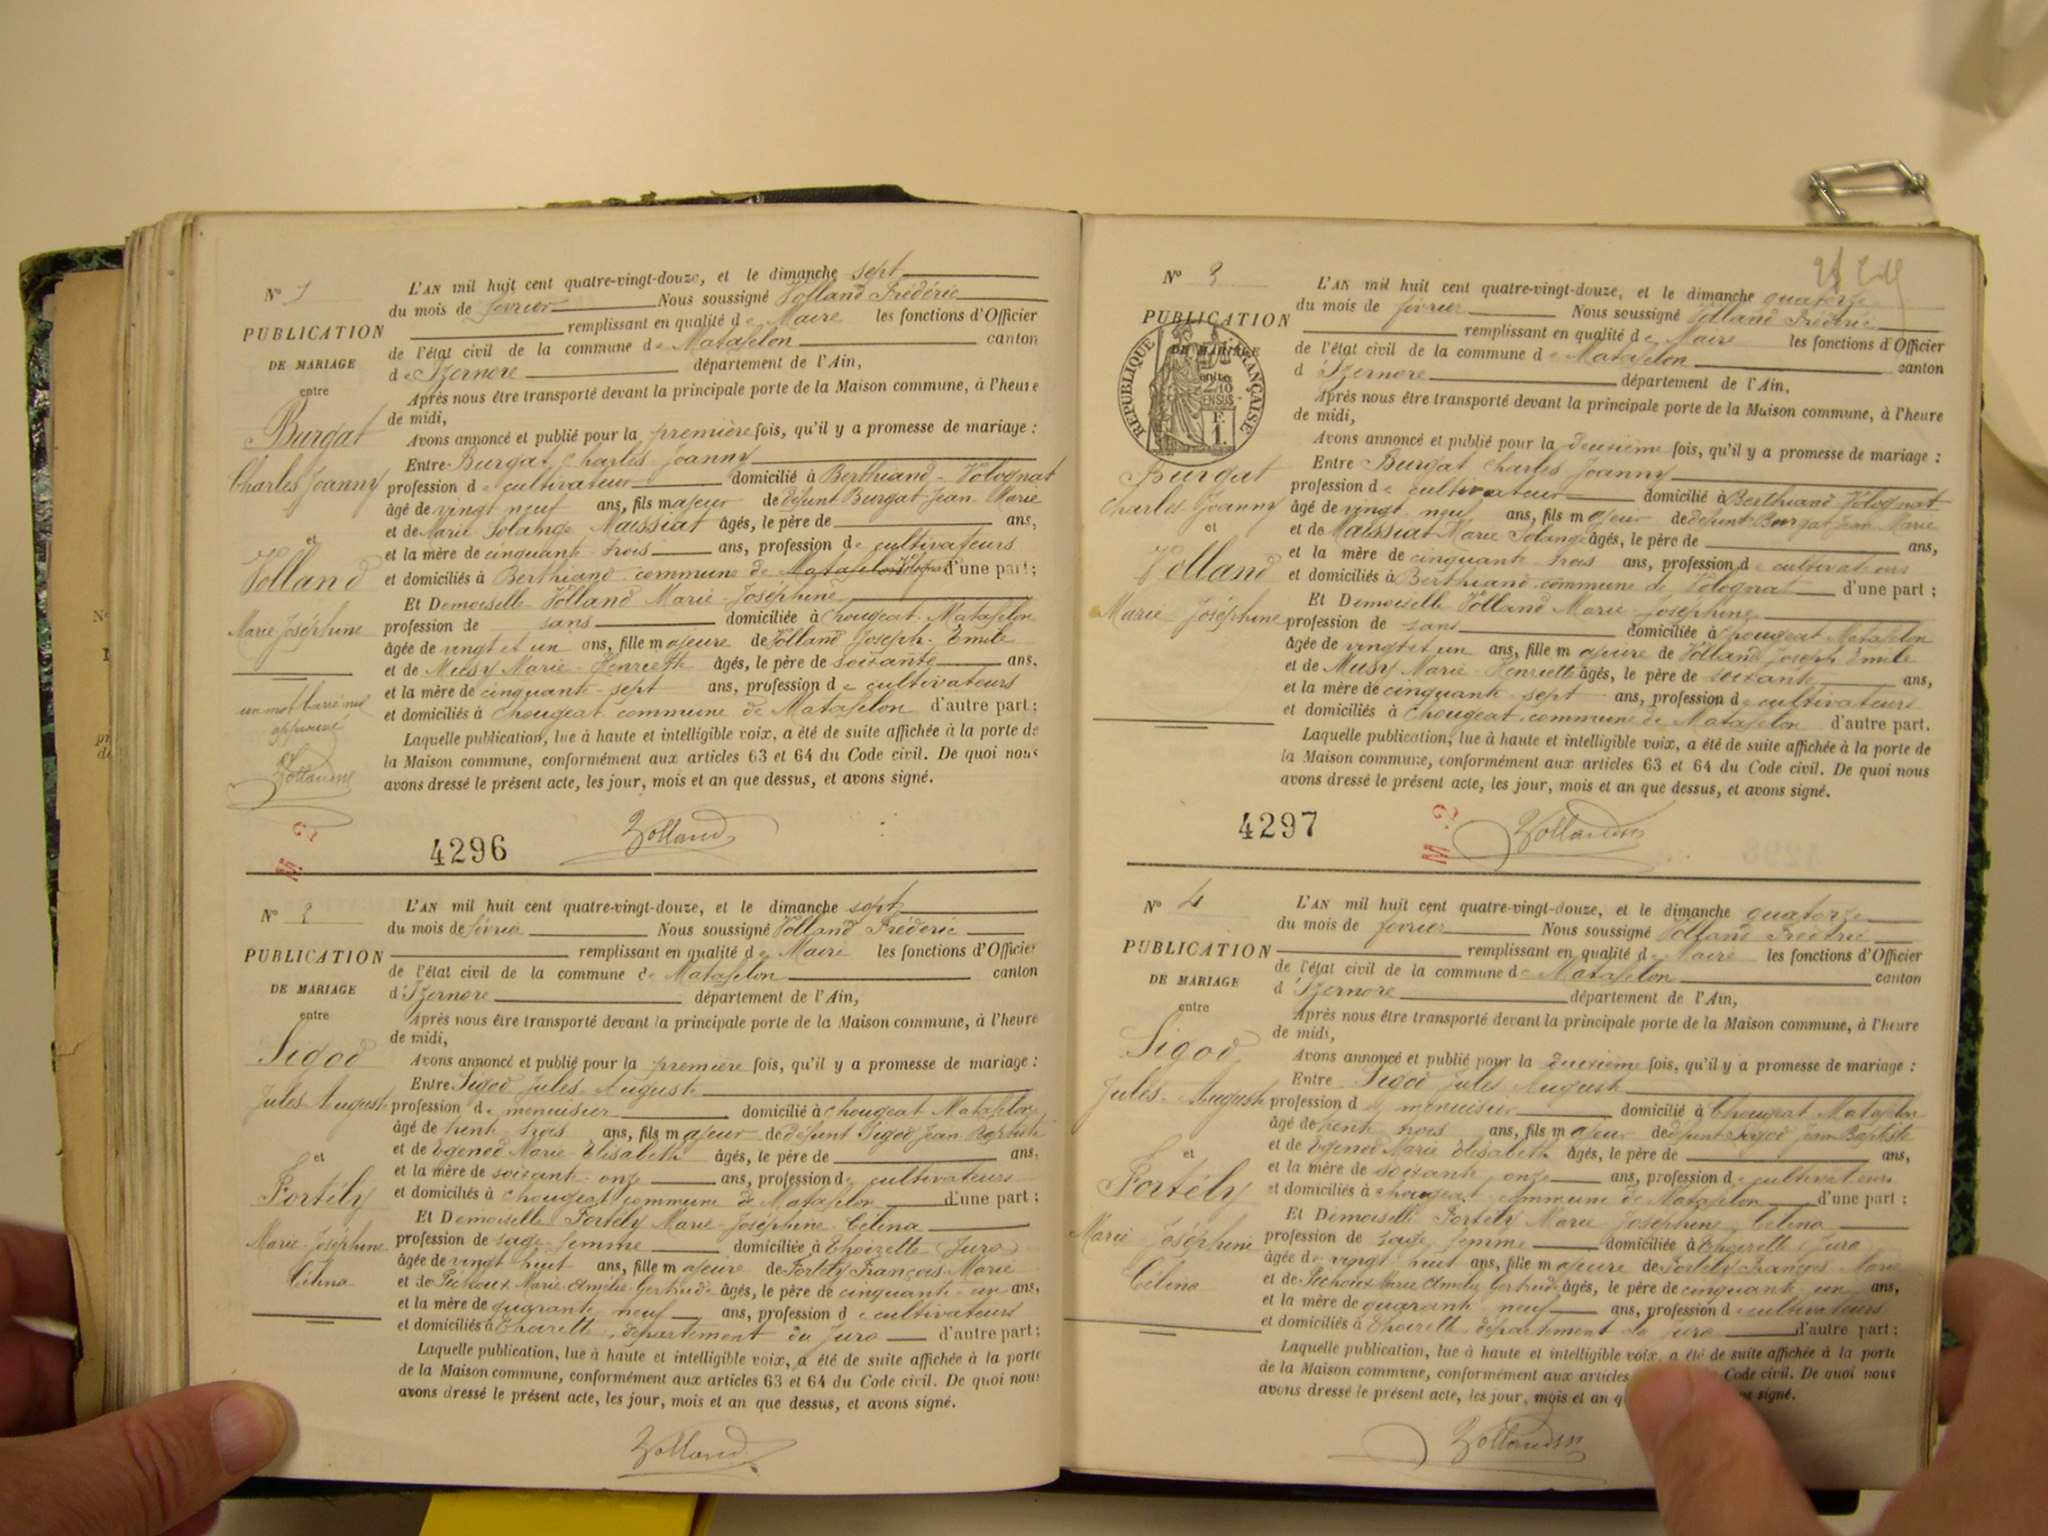 N° 1
PUBLICATION
DE MARIAGE
entre
Burgat
Charles Joanny
et
Volland
Marie Joséphine
un mot barré nul
approuvé
Volland
L'AN mil huit cent quatre-vingt-douze, et le dimanche sept
du mois de février Nous soussigné Volland Frédéric
remplissant en qualité de Maire les fonctions d'Officier
de l'état civil de la commune de Matafelon canton
d'Izernore département de l'Ain,
Après nous être transporté devant la principale porte de la Maison commune, à l'heure
de midi,
Avons annoncé et publié pour la première fois, qu'il y a promesse de mariage :
Entre Burgat Charles Joanny
profession de cultivateur domicilié à Berthiand - Volognat
âgé de vingt neuf ans, fils majeur de défunt Burgat Jean Marie
et de Marie Solange Maissiat âgés, le père de ans,
et la mère de cinquante trois ans, profession de cultivateurs
et domiciliés à Berthiand commune de Matafelon Volognat d'une part ;
Et Demoiselle Volland Marie Joséphine
profession de sans domiciliée à Chougeat Matafelon
âgée de vingt et un ans, fille majeure de Volland Joseph Emile
et de Musy Marie Henriette âgés, le père de soixante ans,
et la mère de cinquante sept ans, profession de cultivateurs
et domiciliés à Chougeat commune de Matafelon d'autre part ;
Laquelle publication, lue à haute et intelligible voix, a été de suite affichée à la porte de
la Maison commune, conformément aux articles 63 et 64 du Code civil. De quoi nous
avons dressé le présent acte, les jour, mois et an que dessus, et avons signé.
Volland
4296
M 2
N° 2
PUBLICATION
DE MARIAGE
entre
Sigod
Jules Auguste
et
Fortély
Marie Joséphine
Célina
L'AN mil huit cent quatre-vingt-douze, et le dimanche sept
du mois de février Nous soussigné Volland Frédéric
remplissant en qualité de Maire les fonctions d'Officier
de l'état civil de la commune de Matafelon canton
d'Izernore département de l'Ain,
Après nous être transporté devant la principale porte de la Maison commune, à l'heure
de midi,
Avons annoncé et publié pour la première fois, qu'il y a promesse de mariage :
Entre Sigod Jules Auguste
profession de menuisier domicilié à Chougeat Matafelon
âgé de trente trois ans, fils majeur de défunt Sigod Jean Baptiste
et de Egened Marie Elisabeth âgés, le père de ans,
et la mère de soixante onze ans, profession de cultivateurs
et domiciliés à Chougeat commune de Matafelon d'une part ;
Et Demoiselle Fortély Marie Joséphine Célina
profession de sage femme domiciliée à Thoirette Jura
âgée de vingt huit ans, fille majeure de Fortély François Marie
et de Pichoux Marie Amélie Gertrude âgés, le père de cinquante un ans,
et la mère de quarante neuf ans, profession de cultivateurs
et domiciliés à Thoirette département du Jura d'autre part ;
Laquelle publication, lue à haute et intelligible voix, a été de suite affichée à la porte
de la Maison commune, conformément aux articles 63 et 64 du Code civil. De quoi nous
avons dressé le présent acte, les jour, mois et an que dessus, et avons signé.
Volland
N° 3
PUBLICATION
DE MARIAGE
entre
RÉPUBLIQUE FRANÇAISE
2/10
EN SUS
1 F.
Burgat
Charles Joanny
et
Volland
Marie Joséphine
L'AN mil huit cent quatre-vingt-douze, et le dimanche quatorze
du mois de février Nous soussigné Volland Frédéric
remplissant en qualité de Maire les fonctions d'Officier
de l'état civil de la commune de Matafelon canton
d Izernore département de l'Ain,
Après nous être transporté devant la principale porte de la Maison commune, à l'heure
de midi,
Avons annoncé et publié pour la deuxième fois, qu'il y a promesse de mariage :
Entre Burgat Charles Joanny
profession de cultivateur domicilié à Berthiand Volognat
âgé de vingt neuf ans, fils majeur de défunt Burgat Jean Marie
et de Maissiat Marie Solange âgés, le père de ans,
et la mère de cinquante trois ans, profession de cultivateurs
et domiciliés à Berthiand commune de Volognat d'une part ;
Et Demoiselle Volland Marie Joséphine
profession de sans domiciliée à Chougeat Matafelon
âgée de vingt et un ans, fille majeure de Volland Joseph Emile
et de Musy Marie Henriette âgés, le père de soixante ans,
et la mère de cinquante sept ans, profession de cultivateurs
et domiciliés à Chougeat commune de Matafelon d'autre part.
Laquelle publication, lue à haute et intelligible voix, a été de suite affichée à la porte de
la Maison commune, conformément aux articles 63 et 64 du Code civil. De quoi nous
avons dressé le présent acte, les jour, mois et an que dessus, et avons signé.
4297
M 2
Volland
N° 4
PUBLICATION
DE MARIAGE
entre
Sigod
Jules Auguste
et
Fortély
Marie Joséphine
Célina
L'AN mil huit cent quatre-vingt-douze, et le dimanche quatorze
du mois de février Nous soussigné Volland Frédéric
remplissant en qualité de Maire les fonctions d'Officier
de l'état civil de la commune de Matafelon canton
d'Izernore département de l'Ain,
Après nous être transporté devant la principale porte de la Maison commune, à l'heure
de midi,
Avons annoncé et publié pour la deuxième fois, qu'il y a promesse de mariage :
Entre Sigod Jules Auguste
profession de menuisier domicilié à Chougeat Matafelon
âgé de trente trois ans, fils majeur de défunt Sigod Jean Baptiste
et de Egened Marie Elisabeth âgés, le père de ans,
et la mère de soixante onze ans, profession de cultivateurs
et domiciliés à Chougeat commune de Matafelon d'une part ;
Et Demoiselle Fortély Marie Joséphine Célina
profession de sage femme domiciliée à Thoirette Jura
âgée de vingt huit ans, fille majeure de Fortély François Marie
et de Pichoux Marie Amélie Gertrude âgés, le père de cinquante un ans,
et la mère de quarante neuf ans, profession de cultivateurs
et domiciliés à Thoirette département du Jura d'autre part ;
Laquelle publication, lue à haute et intelligible voix, a été de suite affichée à la porte
de la Maison commune, conformément aux articles Code civil. De quoi nous
avons dressé le présent acte, les jour, mois et an signé.
Volland